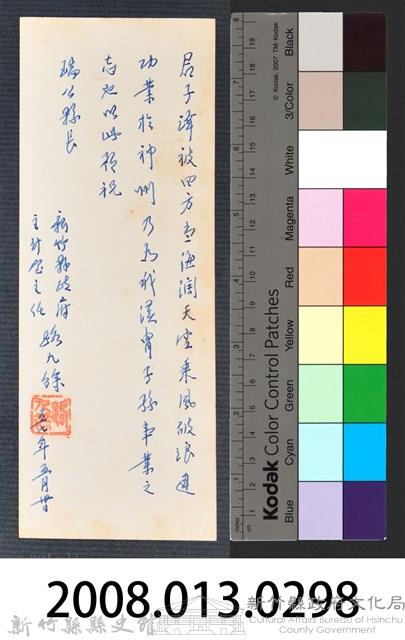 君子澤被四方當海濶天空乘風破浪建
功業於神州乃為我漢胄子孫事業之
志也以此預祝
瑞公縣長
新竹縣政府
主計室主任
五七年五月廿
© Kodak, 2007 TM: Kodak
Kodak Color Control Patches
Blue
Cyan
Green
Yellow
Red
Magenta
White
3/Color
Black
inches
cm
2008.013.0298
新竹縣縣史館
新竹縣政府文化局
Cultural Affairs Bureau of Hsinchu
County Government